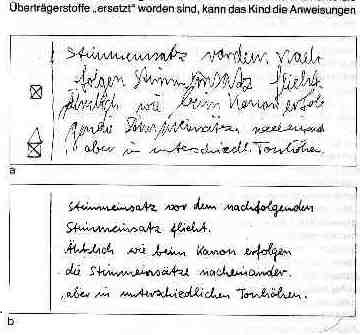 Überträgerstoffe „ersetzt" worden sind, kann das Kind die Anweisungen
Stimmeinsatz vordem nach
folgen Stimmeinsatz flieht
Ähnlich wie beim Kanon erfol
gen die Stimmeinsätze nacheinand
aber in unterschiedl. Tonhöhen.
a
Stimmeinsatz vor dem nachfolgenden
Stimmeinsatz flieht.
Ähnlich wie beim Kanon erfolgen
die Stimmeinsätze nacheinander.
aber in unterschiedlichen Tonhöhen.
b